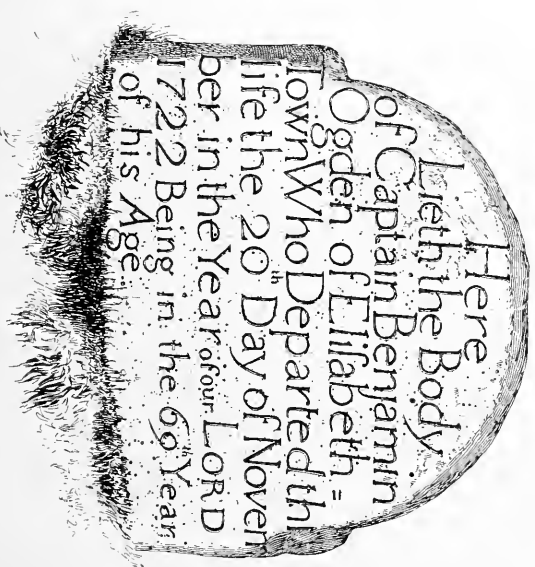 Here
Lieth the Body
of Captain Benjamin
Ogden of Elisabeth =
Town Who Departed thi
life the 20th Day of Novem
ber in the Year of our LORD
1722 Being in the 69th Year
of his Age